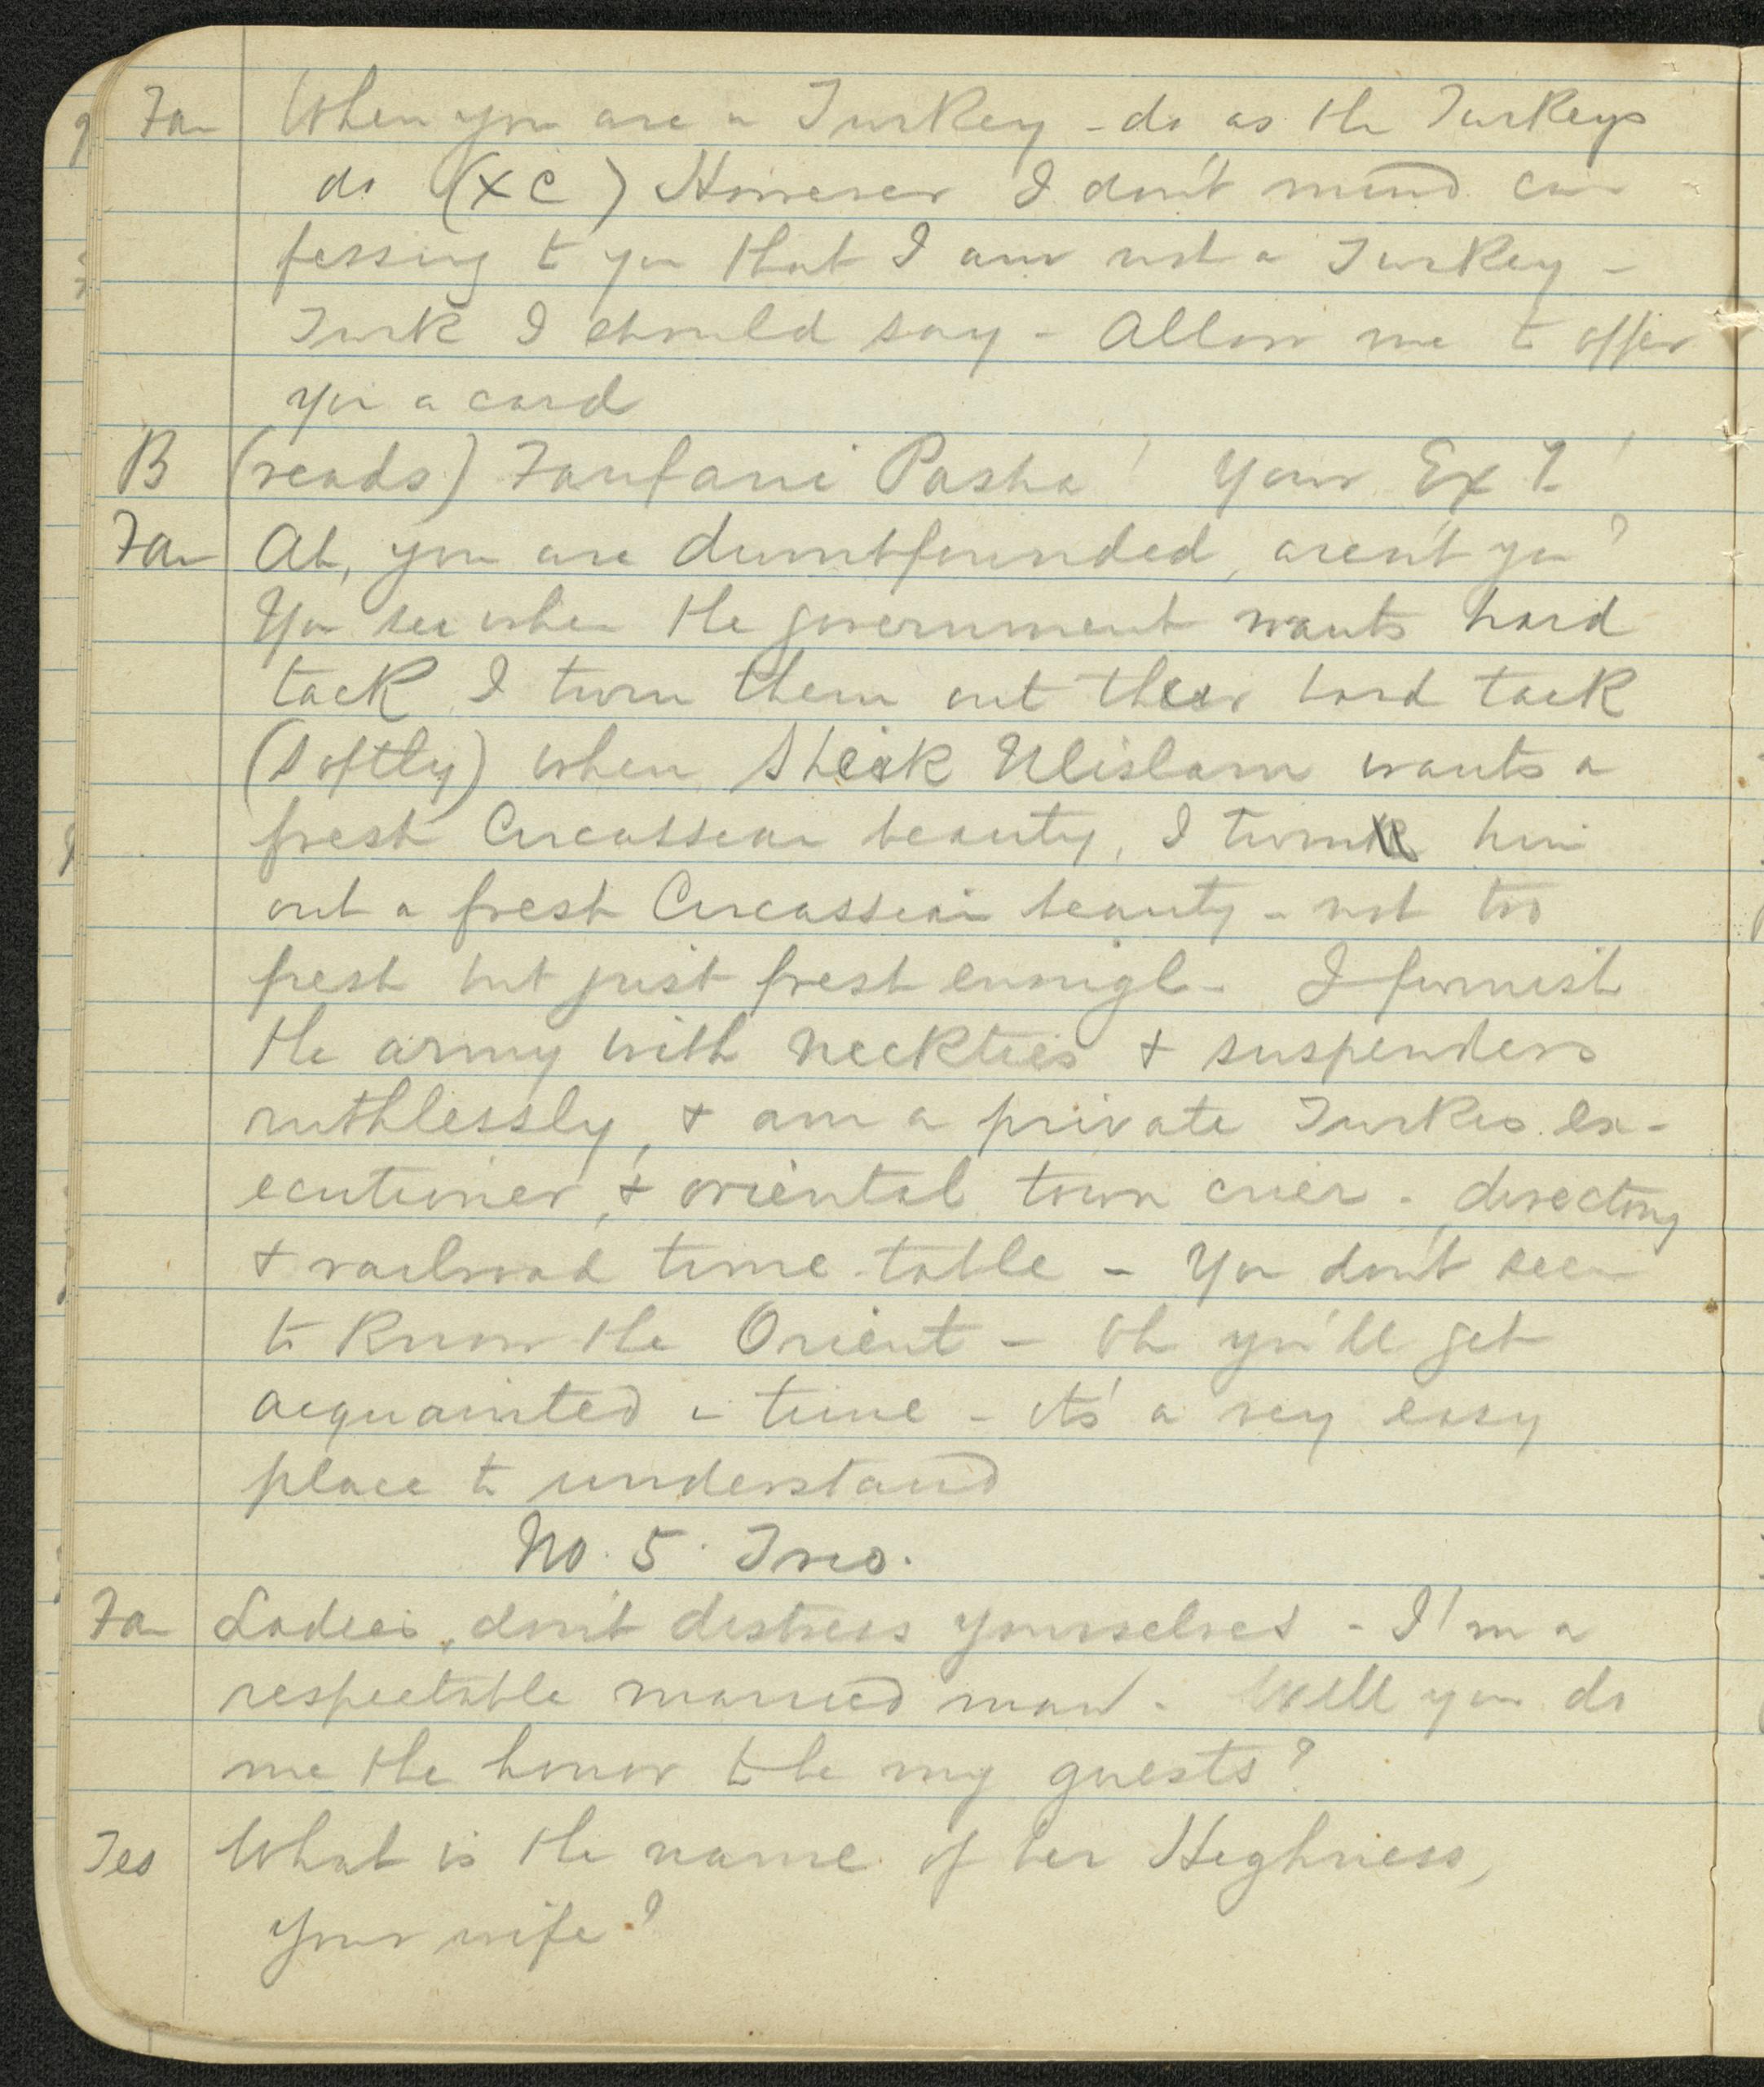 Fan When you are in Turkey - do as the Turkeys
do (X C) However I don't mind con
fessing to you that I am not a Turkey -
Turk I should say - Allow me to offer
you a card
B (reads) Fanfani Pasha! Your Ex!!
Fan Ah, you are dumbfounded, aren't you?
You see when the government wants hard
tack I turn them out their hard tack
(softly) when Sheik Ulislam wants a
fresh Circassian beauty, I turn him
out a fresh Circassian beauty - not too
fresh but just fresh enough - I furnish
the army with neckties & suspenders
ruthlessly, & am a private Turkis. ex-
ecutioner, & oriental town crier - directory
& railroad time-table - You don't seem
to know the Orient - Oh you'll get
acquainted in time - it's a very easy
place to understand
No. 5. Trio.
Fan Ladies, don't distress yourselves - I'm a
respectable married man. Will you do
me the honor to be my guests?
Tes What is the name of her Highness,
your wife?